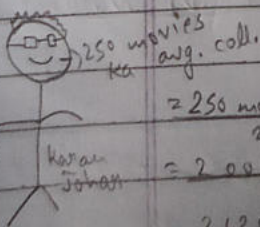 250 movies
ka avg. coll.
= 250 m
karan
Johan
= 200